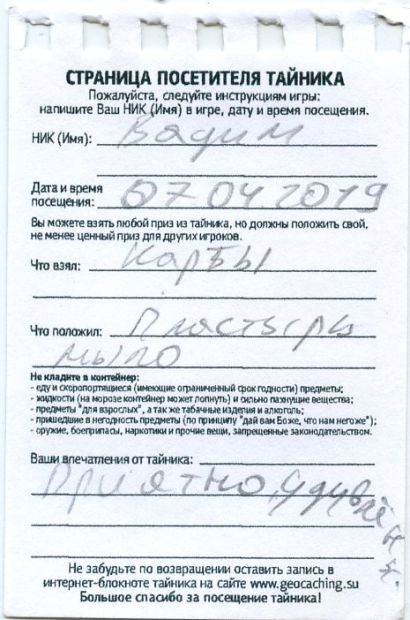 СТРАНИЦА ПОСЕТИТЕЛЯ ТАЙНИКА
Пожалуйста, следуйте инструкциям игры:
напишите Ваш НИК (Имя) в игре, дату и время посещения.
НИК (Имя): Вадим
Дата и время
посещения: 07.04.2019
Вы можете взять любой приз из тайника, но должны положить свой,
не менее ценный приз для других игроков.
Что взял: Карты
Что положил: Пластырь
мыло
Не кладите в контейнер:
- еду и скоропортящиеся (имеющие ограниченный срок годности) предметы;
- жидкости (на морозе контейнер может лопнуть) и сильно пахнущие вещества;
- предметы "для взрослых", а так же табачные изделия и алкоголь;
- пришедшие в негодность предметы (по принципу "дай вам Боже, что нам негоже");
- оружие, боеприпасы, наркотики и прочие вещи, запрещенные законодательством.
Ваши впечатления от тайника:
Приятно,
Не забудьте по возвращении оставить запись в
интернет-блокноте тайника на сайте www.geocaching.su
Большое спасибо за посещение тайника!